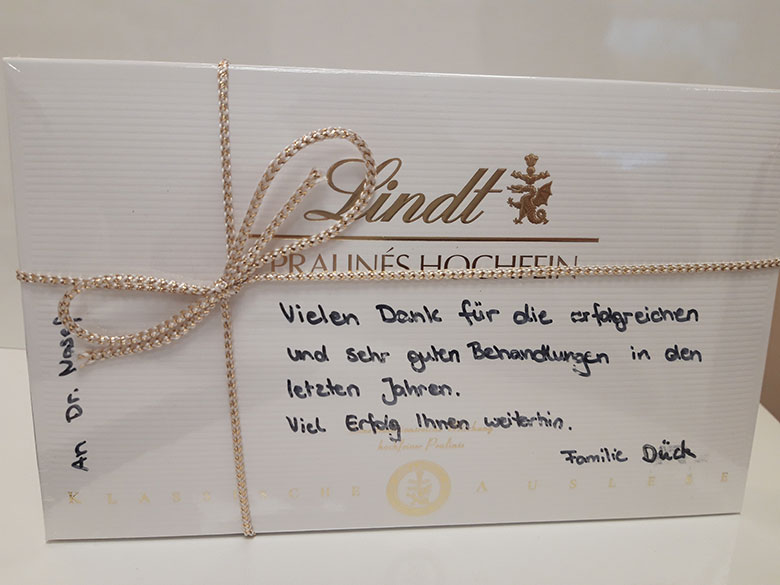 Lindt
PRALINÉS HOCHFEIN
Vielen Dank für die erfolgreichen
und sehr guten Behandlungen in den
letzten Jahren.
Viel Erfolg Ihnen weiterhin.
hochfeiner Pralinés
Familie Dück
KLASSISCHE AUSLESE
An Dr. Nasef